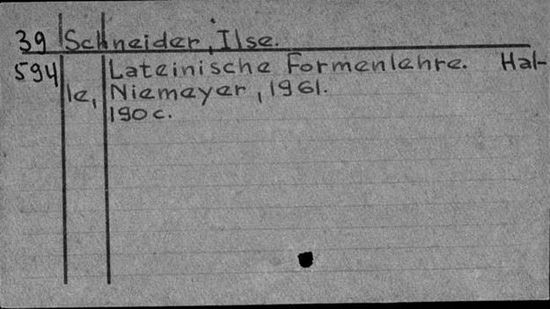 39 Schneider, Ilse.
594 Lateinische Formenlehre. Hal-
le, Niemeyer, 1961.
190 c.